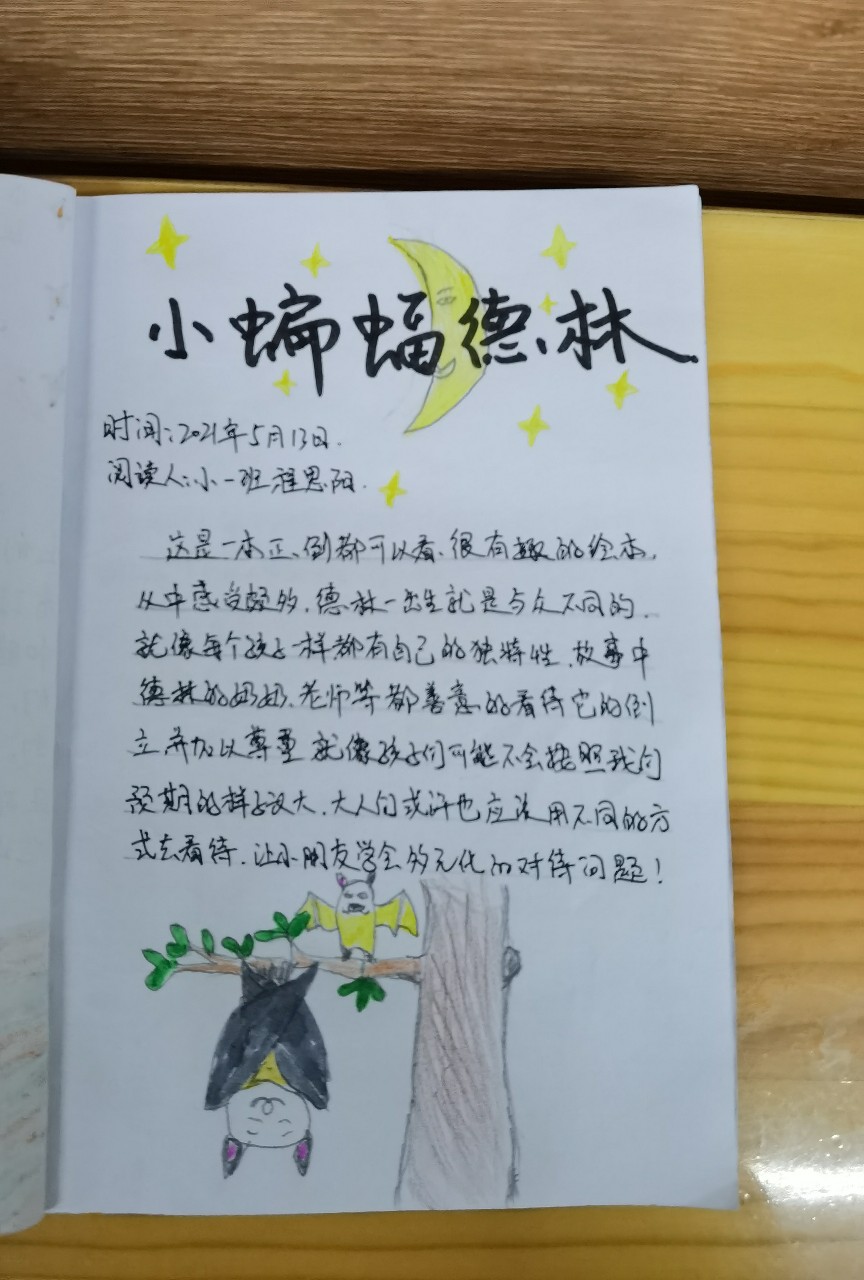 小蝙蝠德林
时间:2021年5月13日.
阅读人:小一班 程思阳.
这是一本正、倒都可以看、很有趣的绘本,
从中感受颇多,德林一出生就是与众不同的,
就像每个孩子一样都有自己的独特性,故事中
德林的奶奶、老师等都善意的看待它的倒
立并加以尊重 就像孩子们可能不会按照我们
预期的样子长大,大人们或许也应该用不同的方
式去看待,让小朋友学会多元化的对待问题!